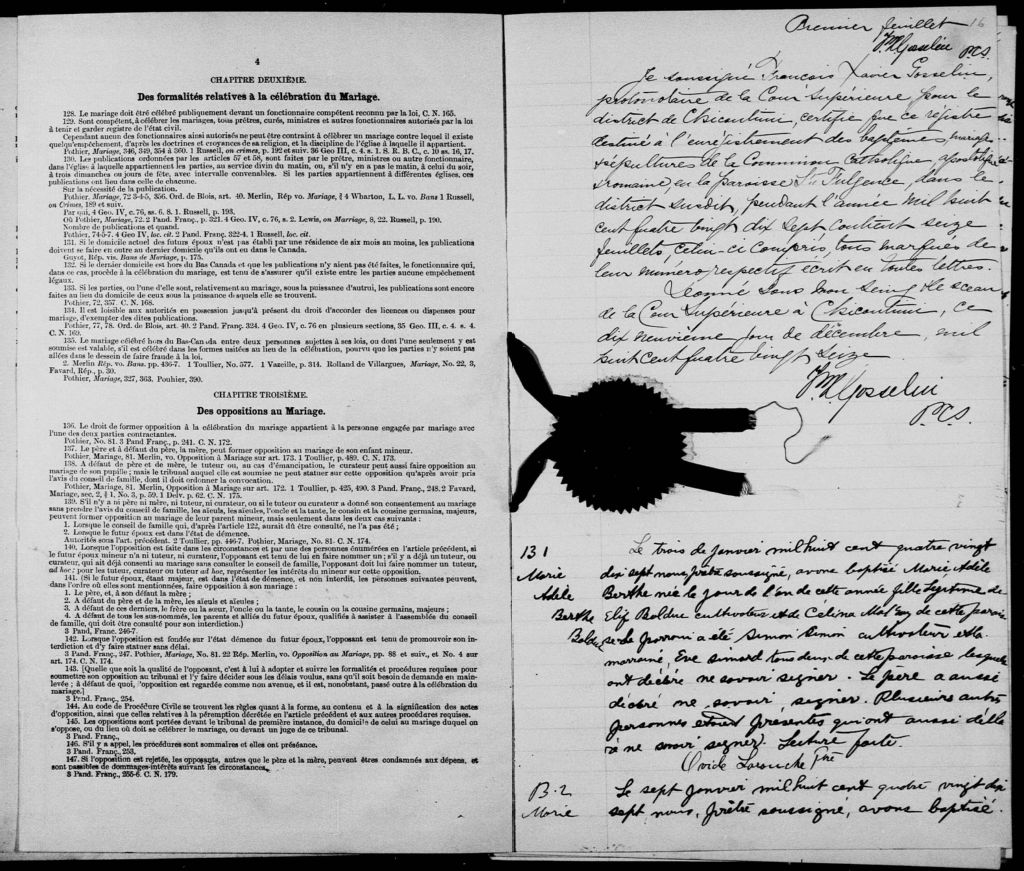 4
CHAPITRE DEUXIÈME.
Des formalités relatives à la célébration du Mariage.
128. Le mariage doit être célébré publiquement devant un fonctionnaire compétent reconnu par la loi, C. N. 165.
129. Sont compétent, à célébrer les mariages, tous prêtres, curés, ministres et autres fonctionnaires autorisés par la loi
à tenir et garder registre de l'état civil.
Cependant aucun des fonctionnaires ainsi autorisés ne peut être contraint à célébrer un mariage contre lequel il existe
quelqu'empêchement, d'après les doctrines et croyances de sa religion, et la discipline de l'église à laquelle il appartient.
Pothier, Mariage, 346, 349, 354 à 360. 1 Russell, on crimes, p. 192 et suiv. 36 Geo III, c. 4. s. 1. S. R. B. C., c. 10 ss. 16, 17.
130. Les publications ordonnées par les articles 57 et 58, sont faites par le prêtre, ministre ou autre fonctionnaire,
dans l'église à laquelle appartiennent les parties, au service divin du matin, ou, s'il n'y en a pas le matin, à celui du soir,
à trois dimanches ou jours de fête, avec intervalle convenables. Si les parties appartiennent à différentes églises, ces
publications ont lieu dans celle de chacune.
Sur la nécessité de la publication.
Pothier, Mariage, 72 3-4-5, 356. Ord. de Blois, art. 40. Merlin, Rép vo. Mariage, § 4 Wharton, L. L. vo. Bans 1 Russell,
on Crimes, 189 et suiv.
Par qui, 4 Geo. IV, c. 76, ss. 6. 8. 1. Russell, p. 193.
Où Pothier, Mariage, 72. 2 Pand. Franç., p. 321. 4 Geo. IV, c. 76, s. 2. Lewis, on Marriage, 8, 22. Russell, p. 190.
Nombre de publications et quand.
Pothier, 74-5-7. 4 Geo IV, loc. cit. 2 Pand. Franç. 322-4. 1 Russell, loc. cit.
131. Si le domicile actuel des futurs époux n'est pas établi par une résidence de six mois au moins, les publications
doivent se faire en outre au dernier domicile qu'ils ont eu dans le Canada.
Guyot, Rép. vis. Bans de Mariage, p. 175.
132. Si le dernier domicile est hors du Bas Canada et que les publications n'y aient pas été faites, le fonctionnaire qui,
dans ce cas, procède à la célébration du mariage, est tenu de s'assurer qu'il existe entre les parties aucune empêchement
légaux.
133. Si les parties, ou l'une d'elle sont, relativement au mariage, sous la puissance d'autrui, les publications sont encore
faites au lieu du domicile de ceux sous la puissance desquels elle se trouvent.
Pothier, 72, 357. C. N. 168.
134. Il est loisible aux autorités en possession jusqu'à présent du droit d'accorder des licences ou dispenses pour
mariage, d'exempter des dites publications.
Pothier, 77, 78. Ord. de Blois, art. 40. 2 Pand. Franç. 324. 4 Geo. IV, c. 76 en plusieurs sections, 35 Geo. III, c. 4. s. 4.
C. N. 169.
135. Le mariage célébré hors du Bas-Canada entre deux personnes sujettes à ses lois, ou dont l'une seulement y est
soumise est valable, s'il est célébré dans les formes usitées au lieu de la célébration, pourvu que les parties n'y soient pas
allées dans le dessein de faire fraude à la loi.
2. Merlin Rép. vo. Bans. pp. 436-7. 1 Toullier, No. 577. 1 Vazeille, p. 314. Rolland de Villargues, Mariage, No. 22, 3,
Favard, Rép., p. 30.
Pothier, Mariage, 327, 363. Pouhier, 390.
CHAPITRE TROISIÈME.
Des oppositions au Mariage.
136. Le droit de former opposition à la célébration du mariage appartient à la personne engagée par mariage avec
l'une des deux parties contractantes.
Pothier, No. 81. 3 Pand Franç., p. 241. C. N. 172.
137. Le père et à défaut du père, la mère, peut former opposition au mariage de son enfant mineur.
Pothier, Mariage, 81. Merlin, vo. Opposition à Mariage sur art. 173. 1 Toullier, p. 489. C. N. 173.
138. A défaut de père et de mère, le tuteur ou, au cas d'émancipation, le curateur peut aussi faire opposition au
mariage de son pupille; mais le tribunal auquel elle est soumise ne peut statuer sur cette opposition qu'après avoir pris
l'avis du conseil de famille, dont il doit ordonner la convocation.
Pothier, Mariage, 81. Merlin, Opposition à Mariage sur art. 172. 1 Toullier, p. 425, 490. 3 Pand. Franç., 248. 2 Favard,
Mariage, sec. 2, § 1, No. 3, p. 59. 1 Delv. p. 62. C. N. 175.
139. S'il n'y a ni père ni mère, ni tuteur, ni curateur, ou si le tuteur ou curateur a donné son consentement au mariage
sans prendre l'avis du conseil de famille, les aïeuls, les aïeules, l'oncle et la tante, le cousin et la cousine germains, majeurs,
peuvent former opposition au mariage de leur parent mineur, mais seulement dans les deux cas suivants:
1. Lorsque le conseil de famille qui, d'après l'article 122, aurait dû être consulté, ne l'a pas été;
2. Lorsque le futur époux est dans l'état de démence.
Autorités sous l'art. précédent. 2 Toullier, pp. 446-7. Pothier, Mariage, No. 81. C. N. 174.
140. Lorsque l'opposition est faite dans les circonstances et par une des personnes énumérées en l'article précédent, si
le futur époux mineur n'a ni tuteur, ni curateur, l'opposant est tenu de lui en faire nommer un; s'il y a déjà un tuteur, ou
curateur, qui ait déjà consenti au mariage sans consulter le conseil de famille, l'opposant doit lui faire nommer un tuteur,
ad hoc: pour les tuteur, curateur ou tuteur ad hoc, représenter les intérêts du mineur sur cette opposition.
141. (Si le futur époux, étant majeur, est dans l'état de démence, et non interdit, les personnes suivantes peuvent,
dans l'ordre où elles sont mentionnées, faire opposition à son mariage:
1. Le père, et, à son défaut la mère;
2. A défaut du père et de la mère, les aïeuls et aïeules;
3. A défaut de ces derniers, le frère ou la sœur, l'oncle ou la tante, le cousin ou la cousine germains, majeurs;
4. A défaut de tous les sus-nommés, les parents et alliés du futur époux, qualifiés à assister à l'assemblée du conseil
de famille, qui doit être consulté pour son interdiction.)
3 Pand, Franc. 246-7.
142. Lorsque l'opposition est fondée sur l'état démence du futur époux, l'opposant est tenu de promouvoir son in-
terdiction et d'y faire statuer sans délai.
3 Pand. Franç., 247. Pothier, Mariage, No. 81. 22 Rép. Merlin, vo. Opposition au Mariage, pp. 88 et suiv., et No. 4 sur
art. 174. C. N. 174.
143. [Quelle que soit la qualité de l'opposant, c'est à lui à adopter et suivre les formalités et procédures requises pour
soumettre son opposition au tribunal et l'y faire décider sous les délais voulus, sans qu'il soit besoin de demande en main-
levée; à défaut de quoi, l'opposition est regardée comme non avenue, et il est, nonobstant, passé outre à la célébration du
mariage.]
3 Pand. Franç., 254.
144. Au code de Procédure Civile se trouvent les règles quant à la forme, au contenu et à la signification des actes
d'opposition, ainsi que celles relatives à la péremption décrétée en l'article précédent et aux autres procédures requises.
145. Les oppositions sont portées devant le tribunal de première instance, du domicile de celui au mariage duquel on
s'oppose, ou du lieu où doit se célébrer le mariage, ou devant un juge de ce tribunal.
3 Pand. Franç.,
146. S'il y a appel, les procédures sont sommaires et elles ont préséance.
3 Pand. Franç., 253.
147. Si l'opposition est rejetée, les opposants, autres que le père et la mère, peuvent être condamnés aux dépens, et
sont passibles de dommages-intérêts suivant les circonstances.
3 Pand. Franç., 255-6. C. N. 179.
Premier feuillet 16
FX Gosselin P.C.S.
Je soussigné François Xavier Gosselin,
protonotaire de la Cour Supérieure pour le
district de Chicoutimi, certifie que ce régistre
destiné à l'enrégistrement des baptêmes, mariages
& sépultures de la Communion Catholique, apostolique
& romaine, en la paroisse St Fulgence, dans le
district susdit, pendant l'année mil huit
cent quatre vingt dix sept contient seize
feuillets, celui-ci compris, tous marqués de
leur numéro respectif écrit en toutes lettres.
Donné sous mon seing & le sceau
de la Cour Supérieure à Chicoutimi, ce
dix neuvième jour de décembre, mil
huit cent quatre vingt seize
FX Gosselin
P.C.S.
B 1
Marie
Adèle
Berthe
Bolduc
Le trois de janvier mil huit cent quatre vingt
dix sept nous, prêtre soussigné, avons baptisé Marie Adèle
Berthe née le jour de l'an de cette année fille légitime de
Bolduc cultivateur et de Celina de cette parois
se. Le parrain a été Simon Simon cultivateur et la
marraine, Eve Simard tous deux de cette paroisse lesquels
ont déclaré ne savoir signer. Le père a aussi
déclaré ne savoir signer. Plusieurs autres
personnes étaient présentes qui ont aussi décla
ré ne savoir signer. Lecture faite.
Ovide Larouche Ptre
B. 2
Marie
Le sept janvier mil huit cent quatre vingt dix
sept nous, prêtre soussigné, avons baptisé